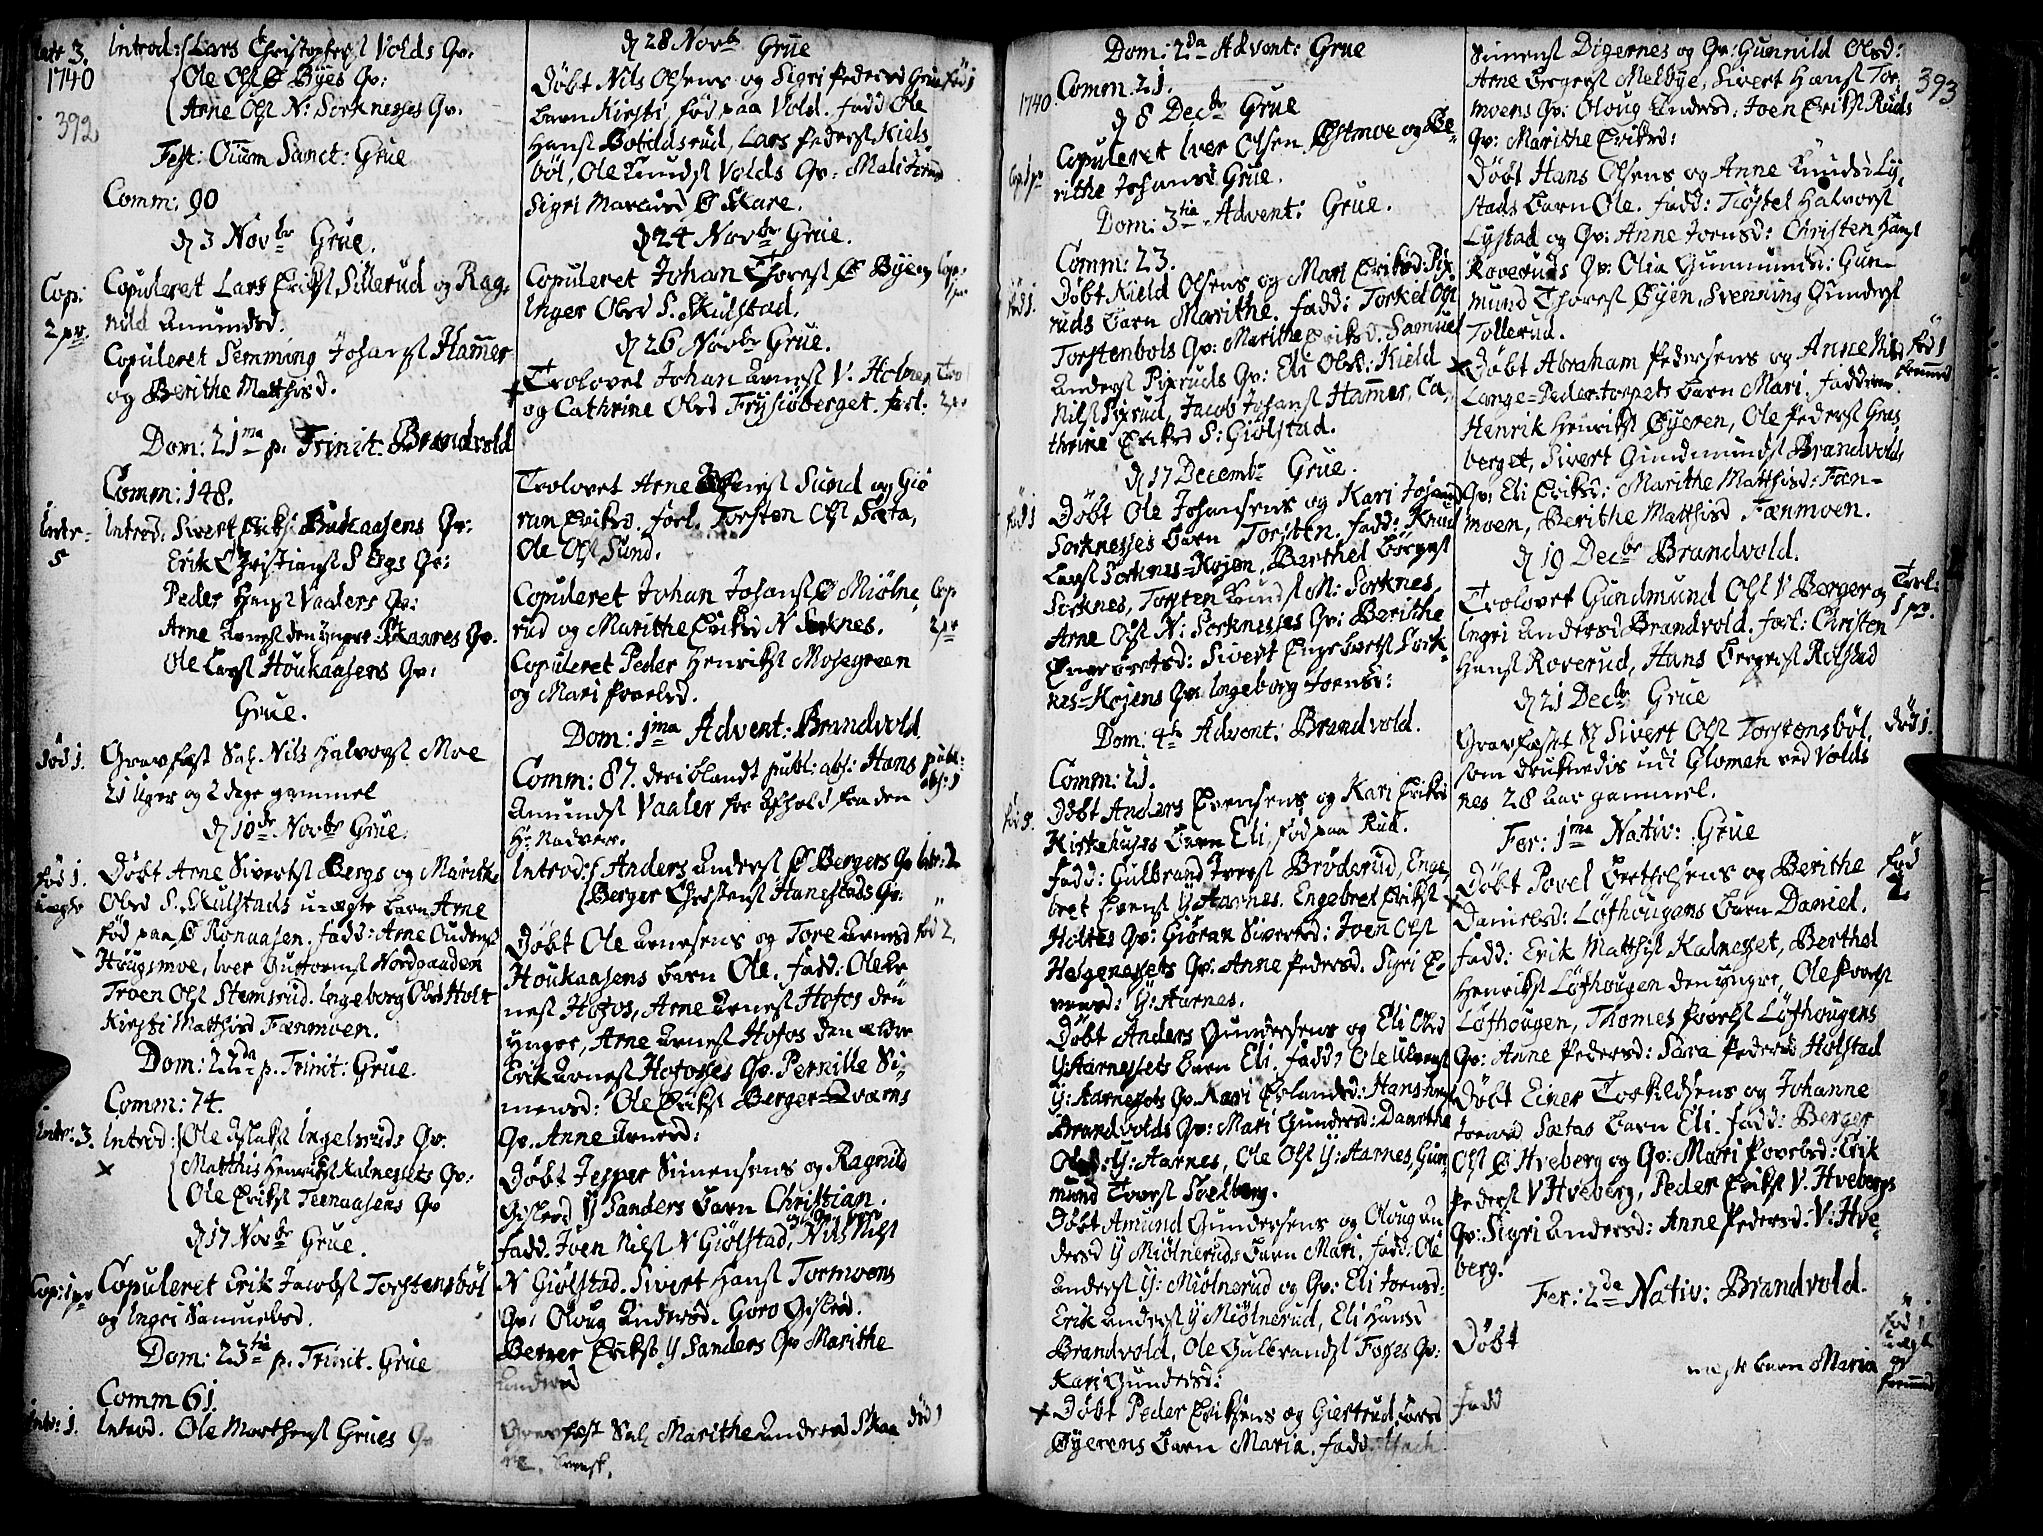 1740
392
Introd: Lars Christophers. Volds Qv:
Ole Ols. Ø Byes Qv:
Arne Ols. N: Sorknesses Qv.
Fest: Oium Sanct: Grue
Comm: 90
d 3 Novbr Grue.
Cop: 2 pr.
Copuleret Lars Eriks. Sillerud og Rag-
nild Amundsd.
Copuleret Semming Johans. Hamer
og Berithe Matthisd.
Dom: 21ma p. Trinit. Brandvold
Comm: 148.
Intr: 5
Introd: Sivert Eriks. Qv:
Erik Christians. Qv:
Peder Hans. Vaalers Qv:
Arne Arnes. den yngre Skaares Qv.
Ole Lars. Houkaasens Qv:
Grue.
død 1.
Gravfæst Sal. Nils Halvors. Moe
21 Uger og 2 dage gammel
d 10de Novbr Grue.
fød 1. uægte
Døbt Arne Siverts. Bergs og Marithe
Olsd S. Skulstads uægte barn Arne
fød paa Ø Rønaasen. fadd: Arne Oudens.
Hougsmoe, Iver Guttorms. Nordgaarden
Troen Ols. Stemsrud. Ingeborg Olsd Holt
Kirsti Matthisd Fænmoen.
Dom: 22da p. Trinit: Grue.
Comm: 74.
Intr: 3.
Introd: Ole Aslaks. Ingelsruds Qv.
Matthis Henriks. Kalnessets Qv:
Ole Eriks. Teenaasens Qv
d 17 Novbr Grue.
Cop: 1 pr
Copuleret Erik Jacobs. Torstensbøl
og Ingri Samuelsd.
Dom: 23tia p. Trinit. Grue
Comm 61.
Intr: 1.
Introd. Ole Morthens. Grues Qv
d 28 Novb Grue
Døbt Nils Olsens og Sigri Pedersd Grue
barn Kirsti, fød paa Vold. fadd Ole
Hans. Botildsrud, Lars Peders. Kiels
bøl, Ole Knuds. Volds Qv: Mali
Sigri Ø Skare.
d 24 Novbr Grue.
Copuleret Johan Thores. Ø Byen og
Inger Olsd S. Skulstad.
d 26 Novbr Grue.
Trolovet Johan Arnes. V. Holmen
og Cathrine Olsd Frysioberget. forl:
Trolovet Arne Sund og Giø
ran Eriksd. forl. Torsten Ols. Sæta,
Ole Ols. Sund.
Copuleret Johan Johans. Ø Miølne
rud og Marithe Eriksd N Sorknes.
Cop 2 pr
Copuleret Peder Henriks. Mosegreen
og Mari Povelsd.
Dom: 1ma Advent: Brandvold.
Comm: 87. deriblandt publ: abs: Hans
Amunds. Vaaler for Afhold fra den
H: Nadver.
Introd: Anders Anders. Ø Bergers Qv
Berger Christens. Hanestads Qv.
Døbt Ole Arnesens og Tore Arnesd
Houkaasens barn Ole. fadd: Ole Ar
nes. Hofos, Arne Arnes. Hofos den
yngre, Arne Arnes. Hofos den ældre
Erik Arnes. Hofosses Qv. Pernille Si-
mensd: Ole Eriks. Berger-Qværns
Qv. Anne Arnesd:
Døbt Jesper Simensens og Ragnild
Gislesd Y Sanders barn Christian.
fadd. Joen Nils. N Giølstad, Nils Nils.
N Giølstad. Sivert Hans. Tormoens
Qv: Oloug Andersd. Goro Gislesd.
Berger Eriks. Y Sanders Qv Marithe
Andersd
Gravfæst Sal. Marithe Andersd Skaa
død 1
Dom: 2da Advent: Grue
1740.
Comm 21.
d 8 Decbr Grue
Copuleret Iver Olsen Østmoe og Be-
rithe Johansd Grue.
Dom: 3tia Advent: Grue.
Comm: 23.
Døbt Kield Olsens og Mari Eriksd Pix
ruds barn Marithe. fadd: Torkel Ols.
Torstenbøls Qv: Marithe Eriksd. Samuel
Anders. Pixruds Qv: Eli Olsd: Kield
Nils. Pixrud, Jacob Johans. Hamer, Ca,
thrine Eriksd S: Giølstad.
d 17 Decembr Grue.
Døbt Ole Johansens og Kari Johansd
Sorknesses barn Torsten. fadd: Knud
Lars. Sorknes-Kojen, Berthel Børges.
Sorknes, Torsten Knuds. M: Sorknes,
Arne Ols. N: Sorknesses Qv: Berithe
Engebretsd: Sivert Engebrets. Sork
nes-Kojens Qv: Ingeborg Joensd:
Dom: 4te Advent: Brandvold.
Comm: 21.
Døbt Anders Evensens og Kari Eriksd
Kirkehuses barn Eli, fød paa Rud.
fadd: Gulbrand Ivers. Brødsrud, Enge
bret Evens. Y Aarnes. Engebret Eriks.
Holtes Qv: Giøran Sivertsd: Joen Ols.
Helgenessets Qv: Anne Pedersd. Sigri E-
vensd: Y: Aarnes.
Døbt Anders Gundersens og Eli Olsd
Y: Aarnessets barn Eli. fadd: Ole
Y: Aarnessets Qv. Kari Erlandsd: Hans
Brandvolds Qv: Mari Gundersd: Daarthe
Olsd: Y: Aarnes, Ole Ols. Y: Aarnes, Gun-
mund Tores.
Døbt Amund Gundersens og Oloug An
dersd Y Miølneruds barn Mari. fadd: Ole
Anders. Y: Miølnerud og Qv: Eli Joensd:
Erik Anders. Y Miølnerud, Eli Hansd
Brandvold, Ole Gulbrands. Fosses Qv:
Kari Gundersd:
Døbt Peder Eriksens og Giertrud Larsd
Øyerens barn Maria. fadd
393
Simens. Digernes og Qv: Gunnild Olsd:
Arne Bergers. Melbye, Sivert Hans. Tor,
moens Qv: Oloug Andersd: Joen Eriks. Ruds
Qv: Marithe Eriksd:
Døbt Hans Olsens og Anne Knudsd Ly,
stads barn Ole. fadd: Tiøstel Halvors.
Lystad og Qv: Anne Joensd: Christen Hans.
Roveruds Qv: Olia Gunmundsd: Gun-
mund Thores. Øyen, Svenning Gunders.
Tollerud.
Døbt Abraham Pedersens og Anne Nilsd
Lange-Pedertorpets barn Mari. fadderne
Henrik Henriks. Øyeren, Ole Peders. Gras
berget, Sivert Gundmunds. Brandvolds
Qv: Eli Eriksd: Marithe Matthisd: Fæn-
moen, Berithe Matthisd Fænmoen.
d 19 Decbr Brandvold.
Trolovet Gundmund Ols. V Berger og
Ingri Andersd Brandvold. forl: Christen
Hans. Roverud, Hans Bergers. Rolstad
d 21 Decbr Grue
Gravfæstet Sl Sivert Ols. Torstensbøl,
som druknedis udi Glomen ved Volds
nes 28 Aar gammel.
død 1.
Fer: 1ma Nativ: Grue
Døbt Povel Berthelsens og Berithe
Danielsd: Løfhougens barn Daniel.
fadd: Erik Matthis. Kalnesset, Berthel
Henriks. Løfhougen den yngre, Ole Povels.
Løfhougen, Thomes Povels. Løfhougens
Qv: Anne Pedersd: Sara Pedersd Holstad
Døbt Einer Torkildsens og Johanne
Joensd Sætas barn Eli. fadd: Berger
Ols. Ø Hveberg og Qv: Mari Povelsd: Erik
Peders. V Hveberg, Peder Eriks. V. Hvebergs
Qv: Sigri Andersd: Anne Pedersd. V: Hve-
berg.
Fer: 2da Nativ: Brandvold.
Døbt
barn Maria
fadd